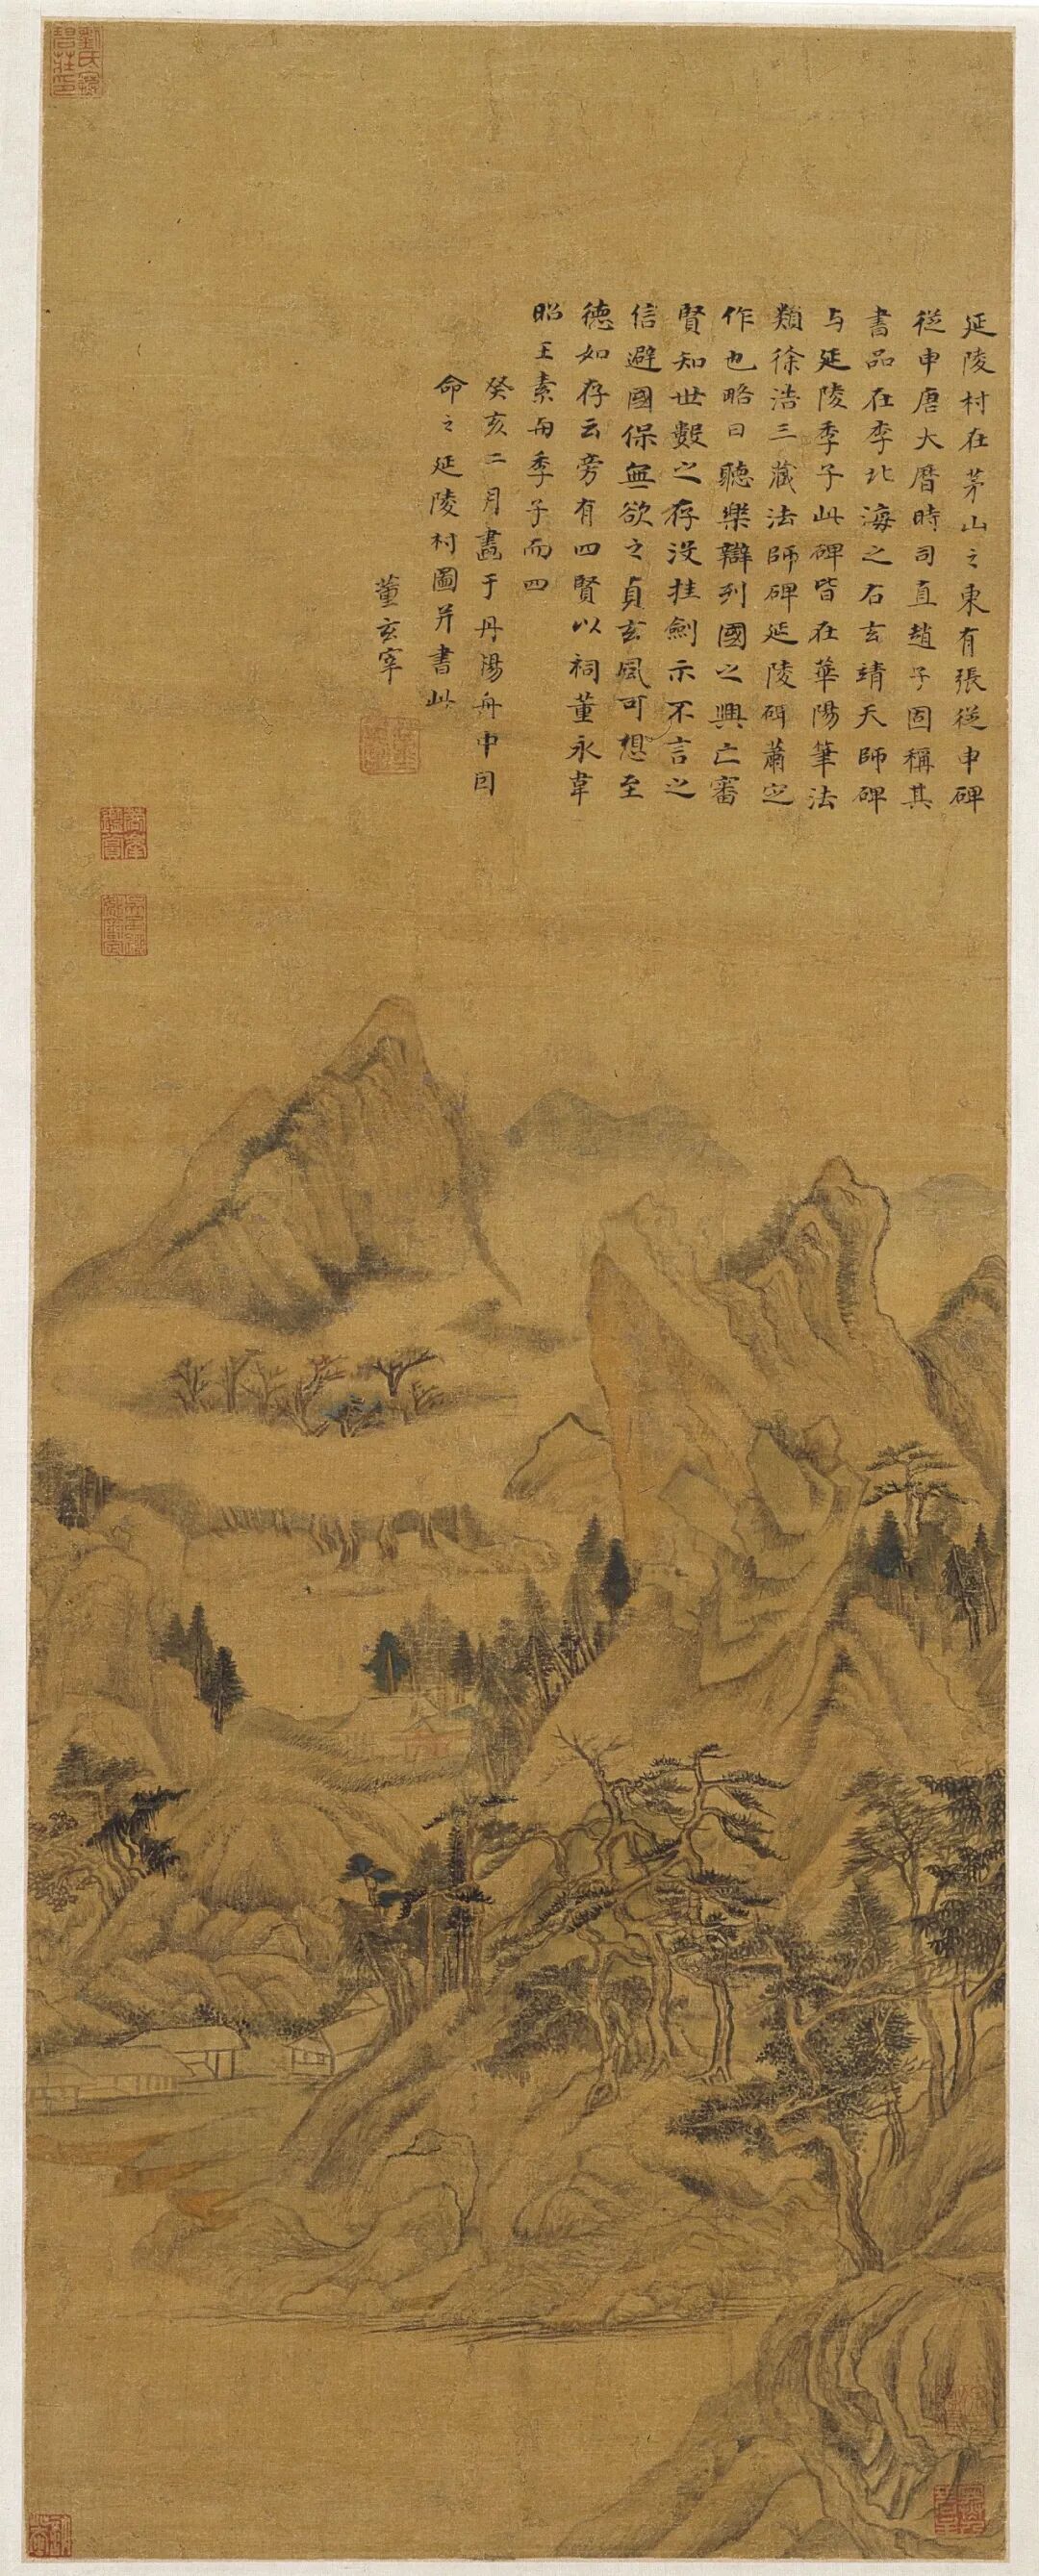 延陵村在茅山之東有張從申碑
從申唐大曆時司直趙子固稱其
書品在李北海之右玄靖天師碑
与延陵季子此碑皆在華陽筆法
類徐浩三藏法師碑延陵碑蕭定
作也略曰聽樂辯列國之興亡審
賢知世數之存沒挂劍示不言之
信避國保無欲之貞玄風可想至
德如存云旁有四賢以祠董永韋
昭王素與季子而四
癸亥二月畵于丹陽舟中因
命之延陵村圖并書此
董玄宰